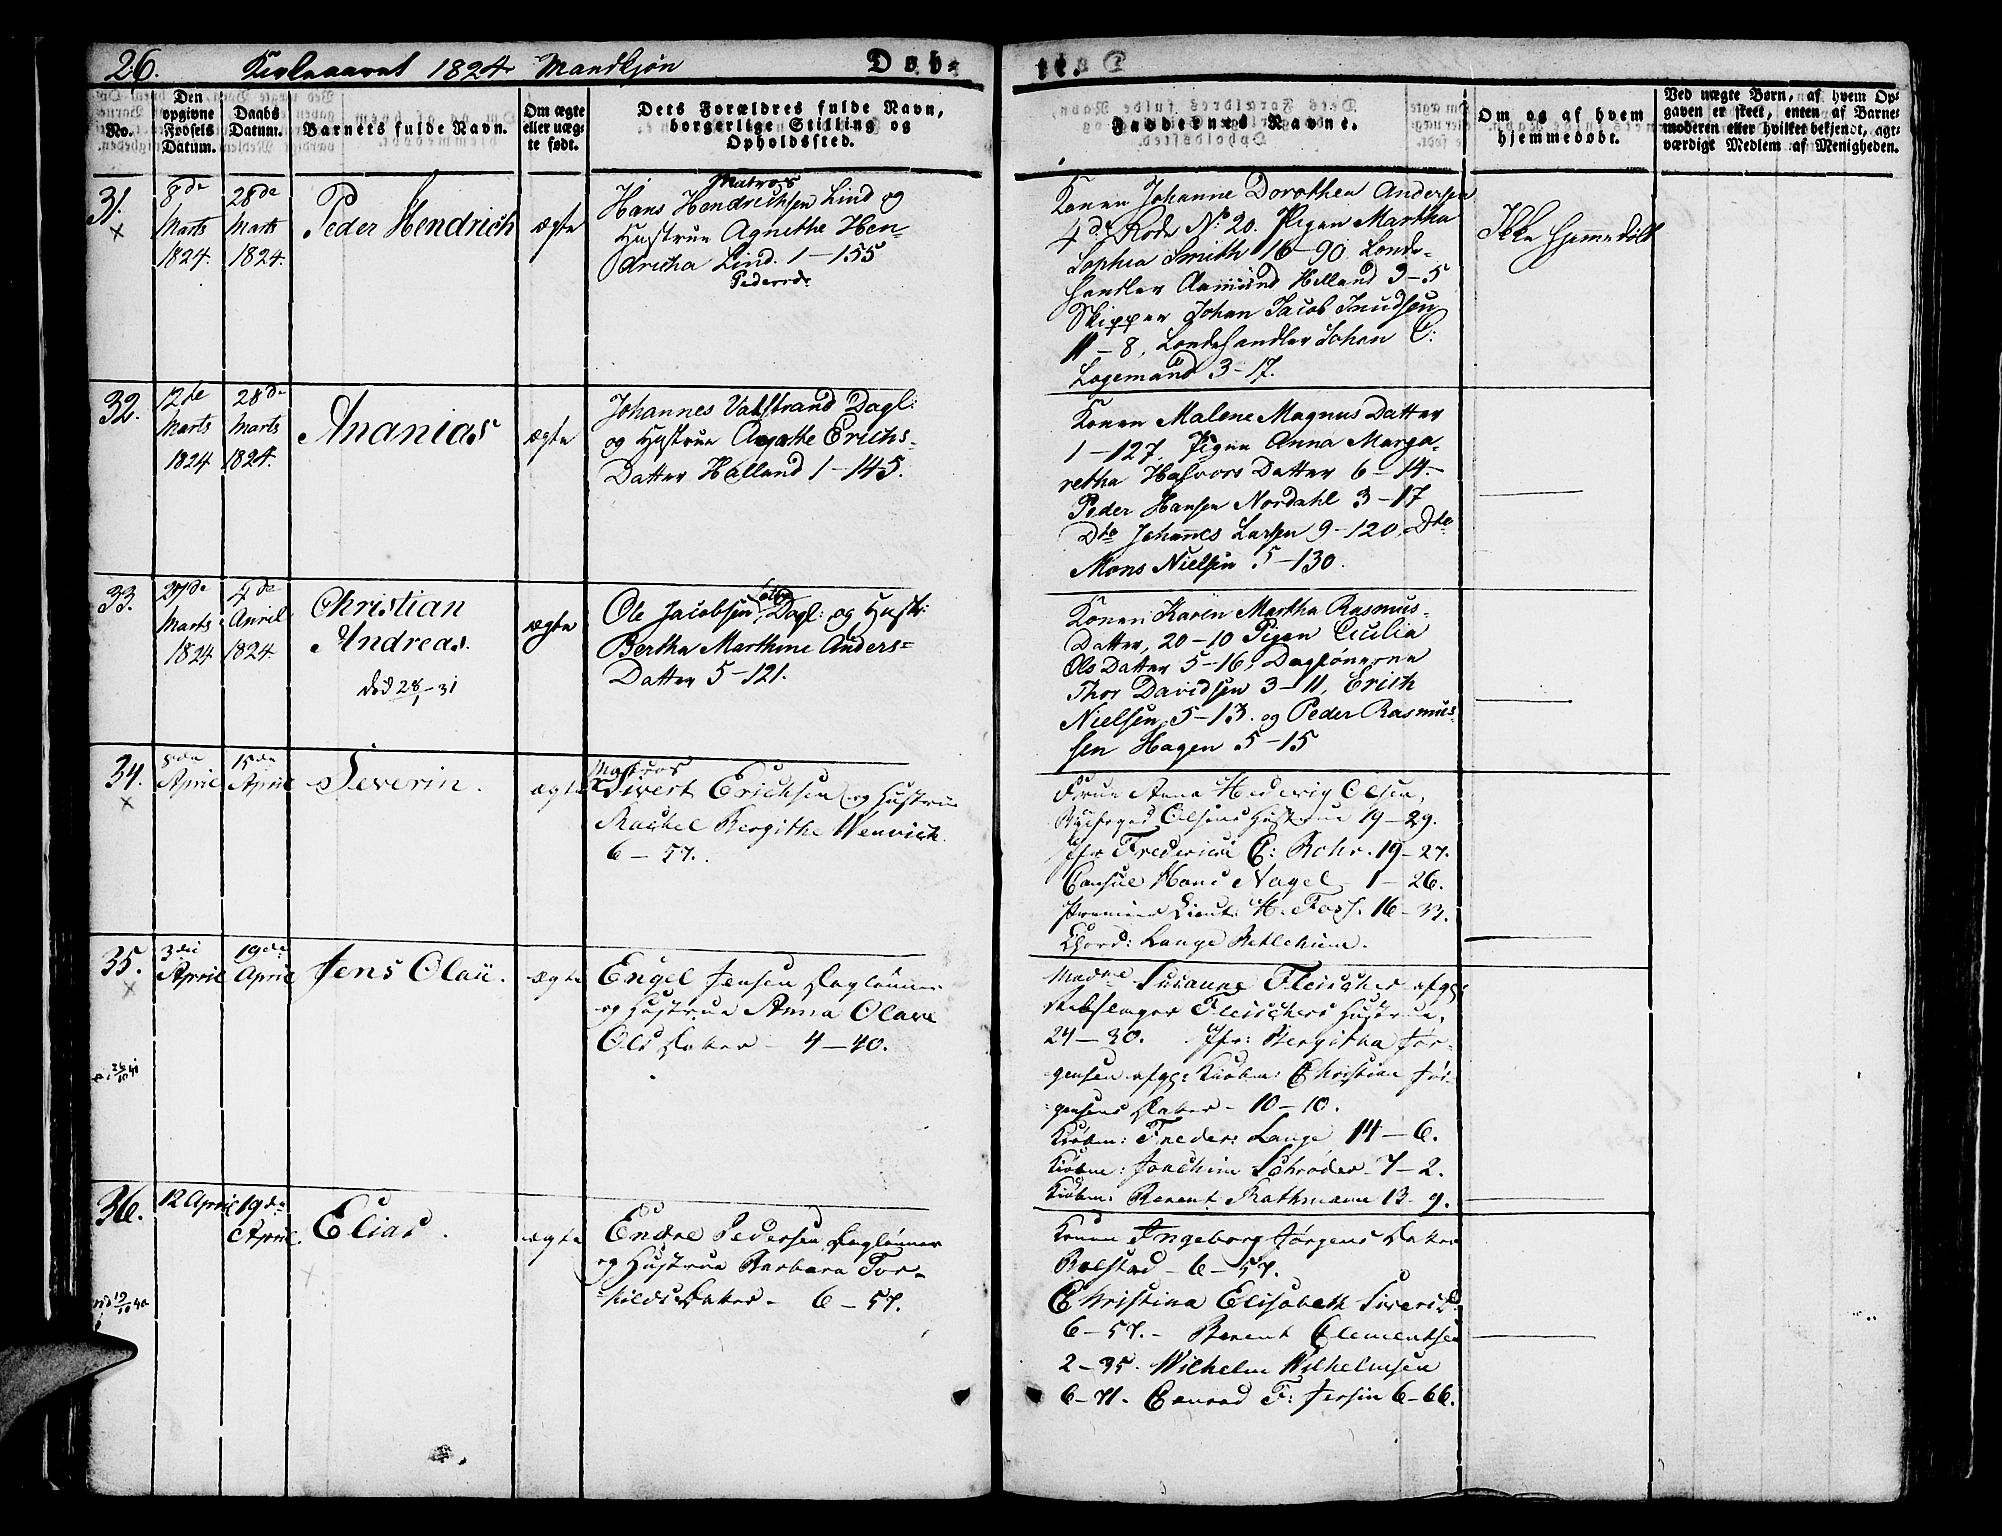 26. Kirkeaaret 1824 Mandkjøn Døb-
te.
No.
Den
opgivne
Fødsels
Datum.
Daabs
Datum.
Barnets fulde Navn.
Om ægte
eller uæg-
te født.
Dets Forældres fulde Navn,
borgerlige Stilling og
Opholdssted.
Faddernes Navne.
Om og af hvem
hjemmedøbt.
Ved uægte Børn, af hvem Op-
gaven er skeet, enten af Barne-
moderen eller hvilket bekjendt, agt-
værdigt Medlem af Menigheden.
31.
8de
Marts
1824.
28de
Marts
1824.
Peder Hendrich
ægte
Matros
Hans Hendrichsen Lind og
Hustrue Agnethe Hen-
dricha Lind. 1-155
Konen Johanne Dorothea Andersen
4de Rode No 20. Pigen Martha
Sophia Smith 16-90. Londe-
handler Aamund Helland 3-5
Skipper Johan Jacob Knudsen
11-8. Londehandler Johan C:
Logemand 3-17.
Ikke hjemmedøbt
32.
12te
Marts
1824
28de
Marts
1824.
Ananias
ægte
Johannes Vatstrand Dagl:
og Hustrue Agathe Erichs-
Datter Helland 1-145.
Konen Malene Magnus Datter
1-127. Pigen Anna Marga-
retha Halvors Datter 6-14-
Peder Hansen Nordahl 3-17
Dto Johannes Larsen 9-120, Dto
Mons Nielsen 5-130.
33.
27de
Marts
1824
4de
April
1824.
Christian
Andreas.
død 28/1-31
ægte
Ole Jacobsen Dagl: og Hustr:
Bertha Marthine Anders-
Datter 5-121.
Konen Karen Martha Rasmus-
Datter, 20-10 Pigen Cicilia
Ols Datter 5-16, Daglønerne
Thor Davidsen 3-11, Erich
Nielsen 5-13. og Peder Rasmus
sen Hagen 5-15
34.
April
15de
April
Severin.
ægte
Matros
Sivert Erichsen og Hustrue
Rachel Bergithe Wenvich.
6-57.
Frue Anna Hedevig Olsen,
Olsens Hustrue 19-29.
Jfr Frederica C: Rohr. 19-27.
Consul Hans Nagel 1-26.
Premier Lieut: H. Foss. 16-33.
Lange
35.
3die
April
19de
April
Jens Olau.
ægte
Engel Jensen Dagløner
og Hustrue Anna Olave
Ols Datter - 4-40.
Madme Susanne Fleischer afg:
Rebslager Fleischers Hustrue,
24-30. Jfr: Bergitha Jør-
gensen afg: Kiøbm: Christian Jør-
gensens Datter - 10-10.
Kiøbm: Freder: Lange 14-6.
Kiøbm: Joachim Schrøder 7-2.
Kiøbm: Berent Rathmann 13-9.
36.
12 April
19de
April.
Elias.
ægte
Endre Pedersen Dagløner
og Hustrue Barbara Tor-
kilds Datter - 6-57.
Konen Ingeborg Jørgens Datter
Bolstad - 6-57.
Christina Elisabeth Siverts D.
6-57.- Berent Clementsen
2-35. Wilhelm Wilhelmsen
6-71. Conrad F: Jersin 6-66.